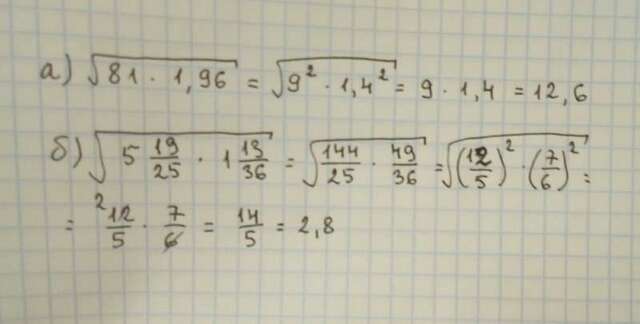 а) √81 · 1,96 = √9² · 1,4² = 9 · 1,4 = 12,6
б) √5 19/25 · 1 13/36 = √144/25 · 49/36 = √(12/5)² · (7/6)² =
= ²12/5 · 7/6 = 14/5 = 2,8